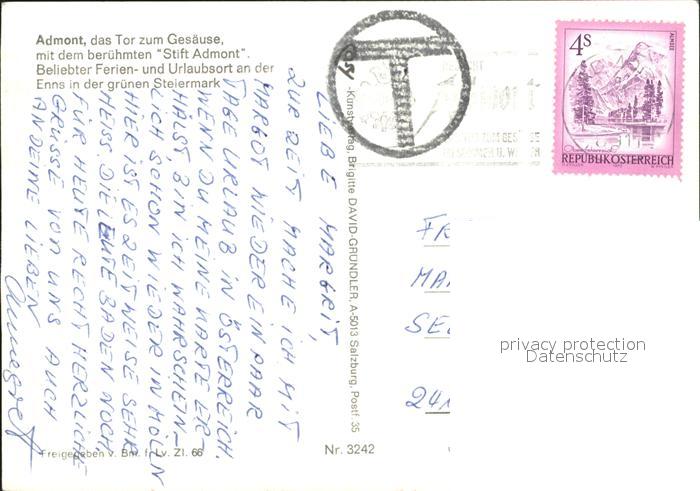 Admont, das Tor zum Gesäuse,
mit dem berühmten "Stift Admont".
Beliebter Ferien- und Urlaubsort an der
Enns in der grünen Steiermark
LIEBE MARGRIT,
ZUR ZEIT MACHE ICH MIT
MARGOT WIEDER EIN PAAR
TAGE URLAUB IN ÖSTERREICH.
WENN DU MEINE KARTE ER-
HÄLST BIN ICH WAHRSCHEIN-
LICH SCHON WIEDER IN MÖLN
HIER IST ES ZEITWEISE SEHR
HEISS. DIE LEUTE BADEN NOCH.
FÜR HEUTE RECHT HERZLICHE
GRÜSSE VON UNS AUCH
AN DEINE LIEBEN
Annegret
Freigegeben v. Bm. f. Lv. Zl. 66
-Kunstverlag, Brigitte DAVID-GRÜNDLER, A-5013 Salzburg, Postf. 35
Nr. 3242
T
4S
ALMSEE
REPUBLIK ÖSTERREICH
FR
MA
SE
241
privacy protection
Datenschutz